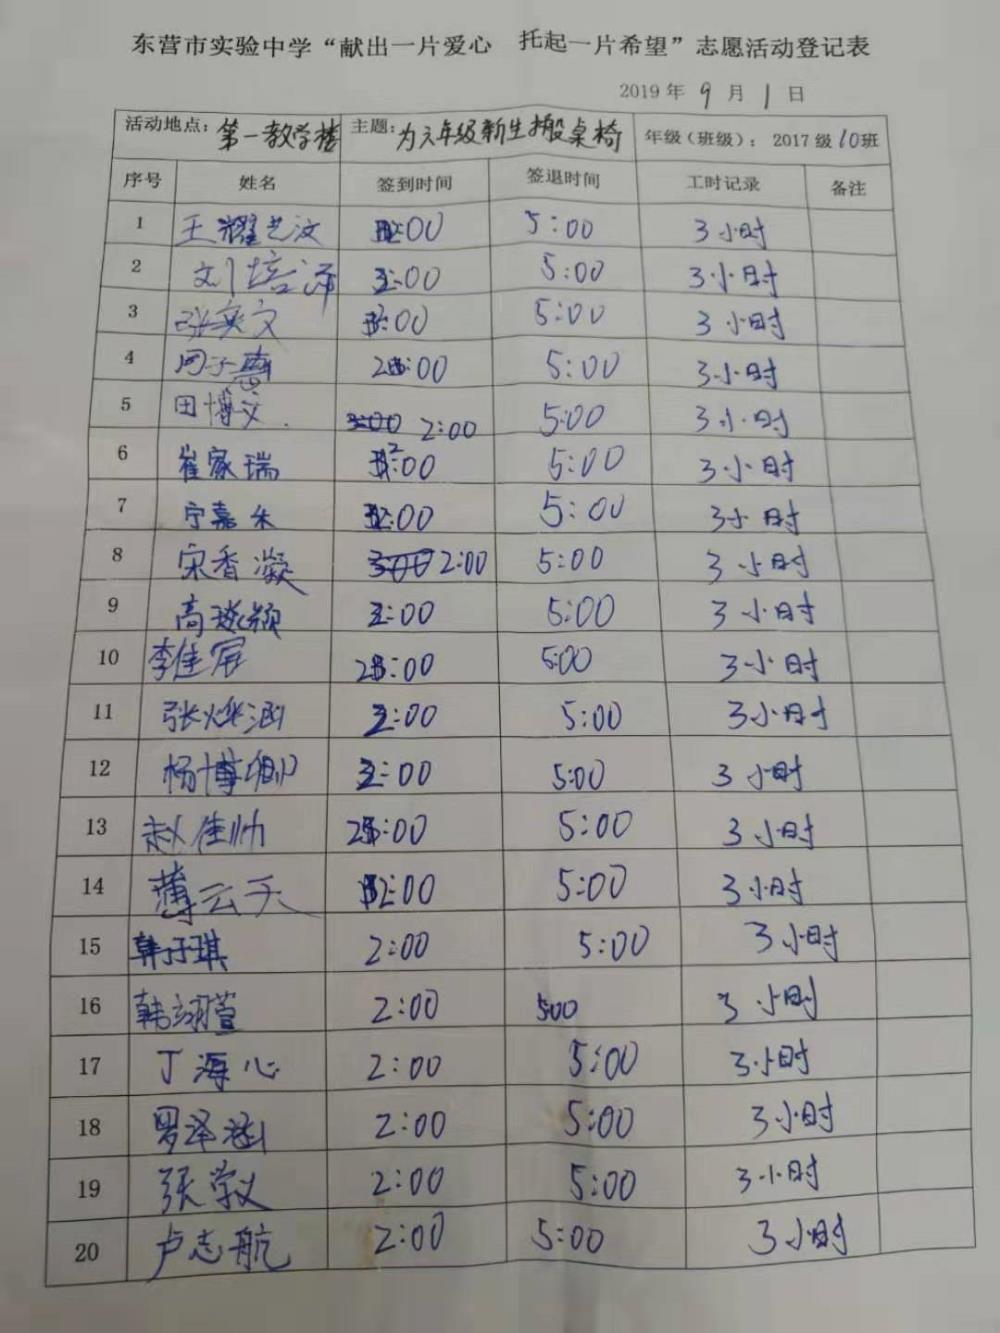 东营市实验中学“献出一片爱心 托起一片希望”志愿活动登记表
2019年9月1日
活动地点：第一教学楼 主题：为六年级新生搬桌椅 年级（班级）：2017级10班
序号 姓名 签到时间 签退时间 工时记录 备注
1 王耀艺汶 2:00 5:00 3小时
2 刘培泽 2:00 5:00 3小时
3 张奕文 2:00 5:00 3小时
4 周子惠 2:00 5:00 3小时
5 田博文. 3:00 2:00 5:00 3小时
6 崔家瑞 2:00 5:00 3小时
7 宁嘉禾 2:00 5:00 3小时
8 宋香凝 3:00 2:00 5:00 3小时
9 高 颖 2:00 5:00 3小时
10 李佳 2:00 5:00 3小时
11 张 涵 2:00 5:00 3小时
12 杨博卿 2:00 5:00 3小时
13 赵佳帅 2:00 5:00 3小时
14 薄云天 2:00 5:00 3小时
15 韩子琪 2:00 5:00 3小时
16 韩翊萱 2:00 5:00 3小时
17 丁海心 2:00 5:00 3小时
18 罗泽涵 2:00 5:00 3小时
19 张学义 2:00 5:00 3小时
20 卢志航 2:00 5:00 3小时